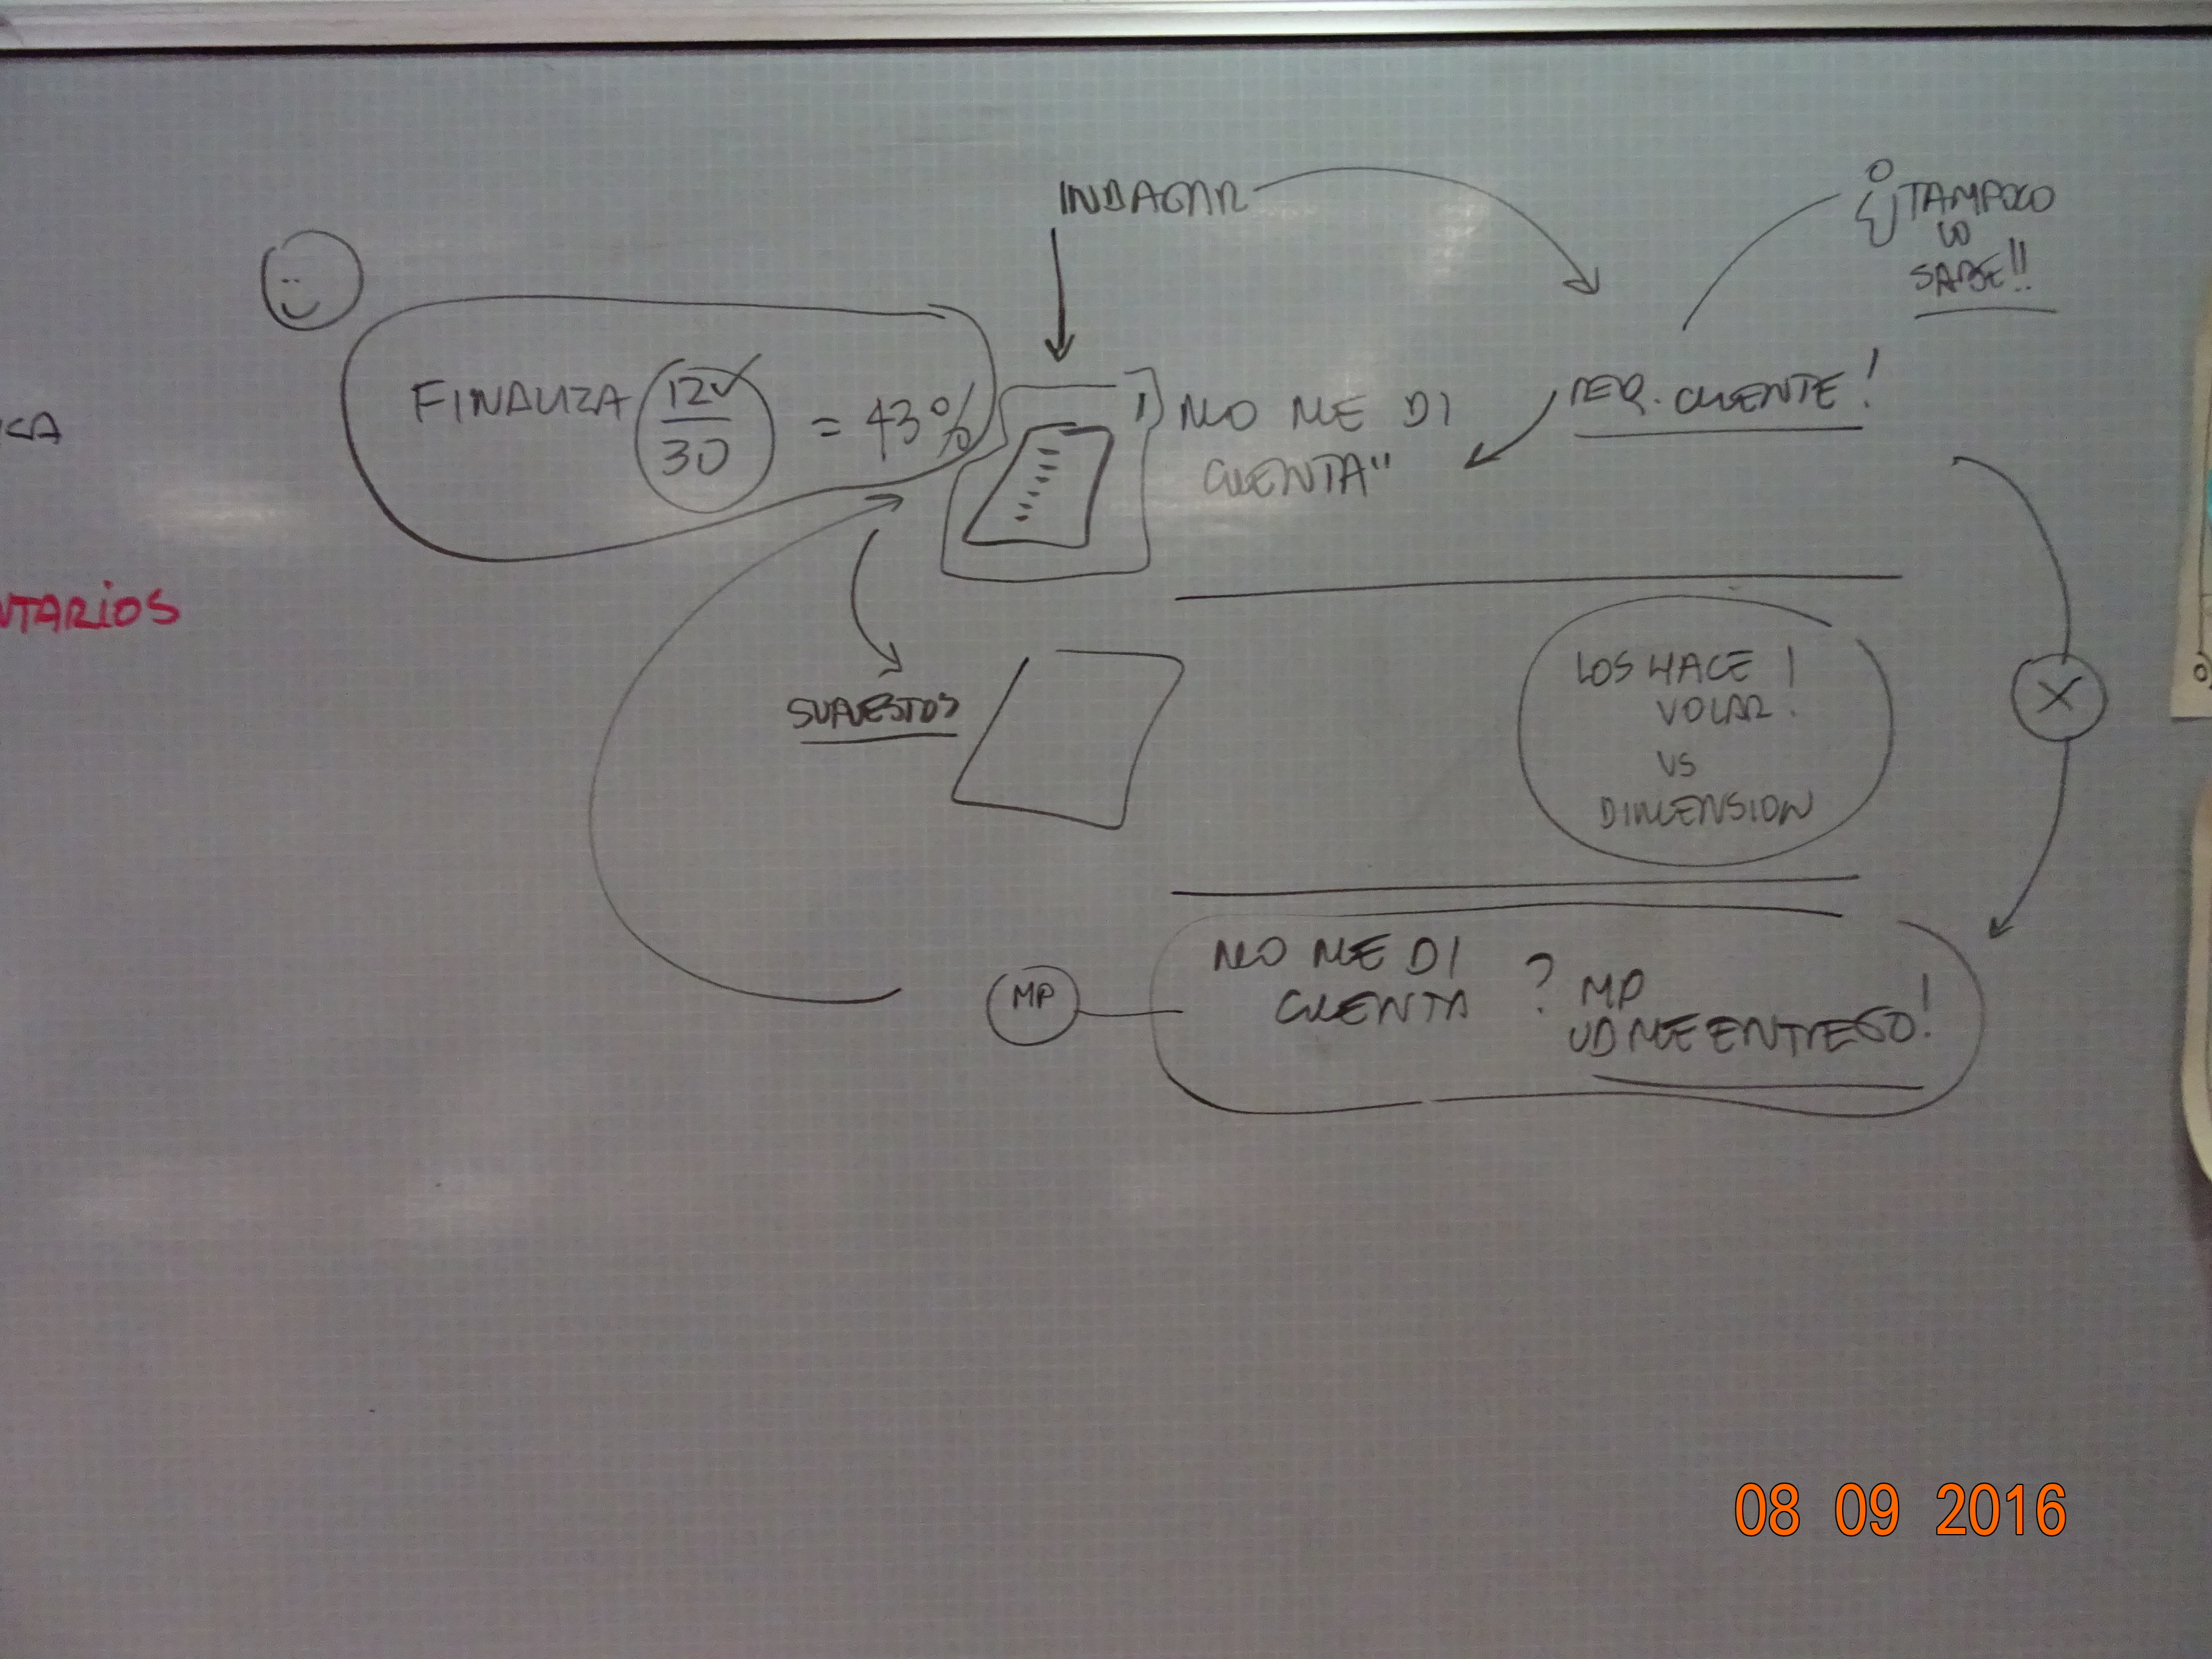 INDAGAR
TAMPOCO
LO
SABE!!
FINALIZA 12✓
30
= 43%
NO ME DI
CUENTA"
REQ. CLIENTE!
NTARIOS
SUPUESTOS
LOS HACE!
VOLAR!
VS
DIMENSION
MP
NO ME DI
CUENTA ?
MP
UD ME ENTREGO!
X
08 09 2016